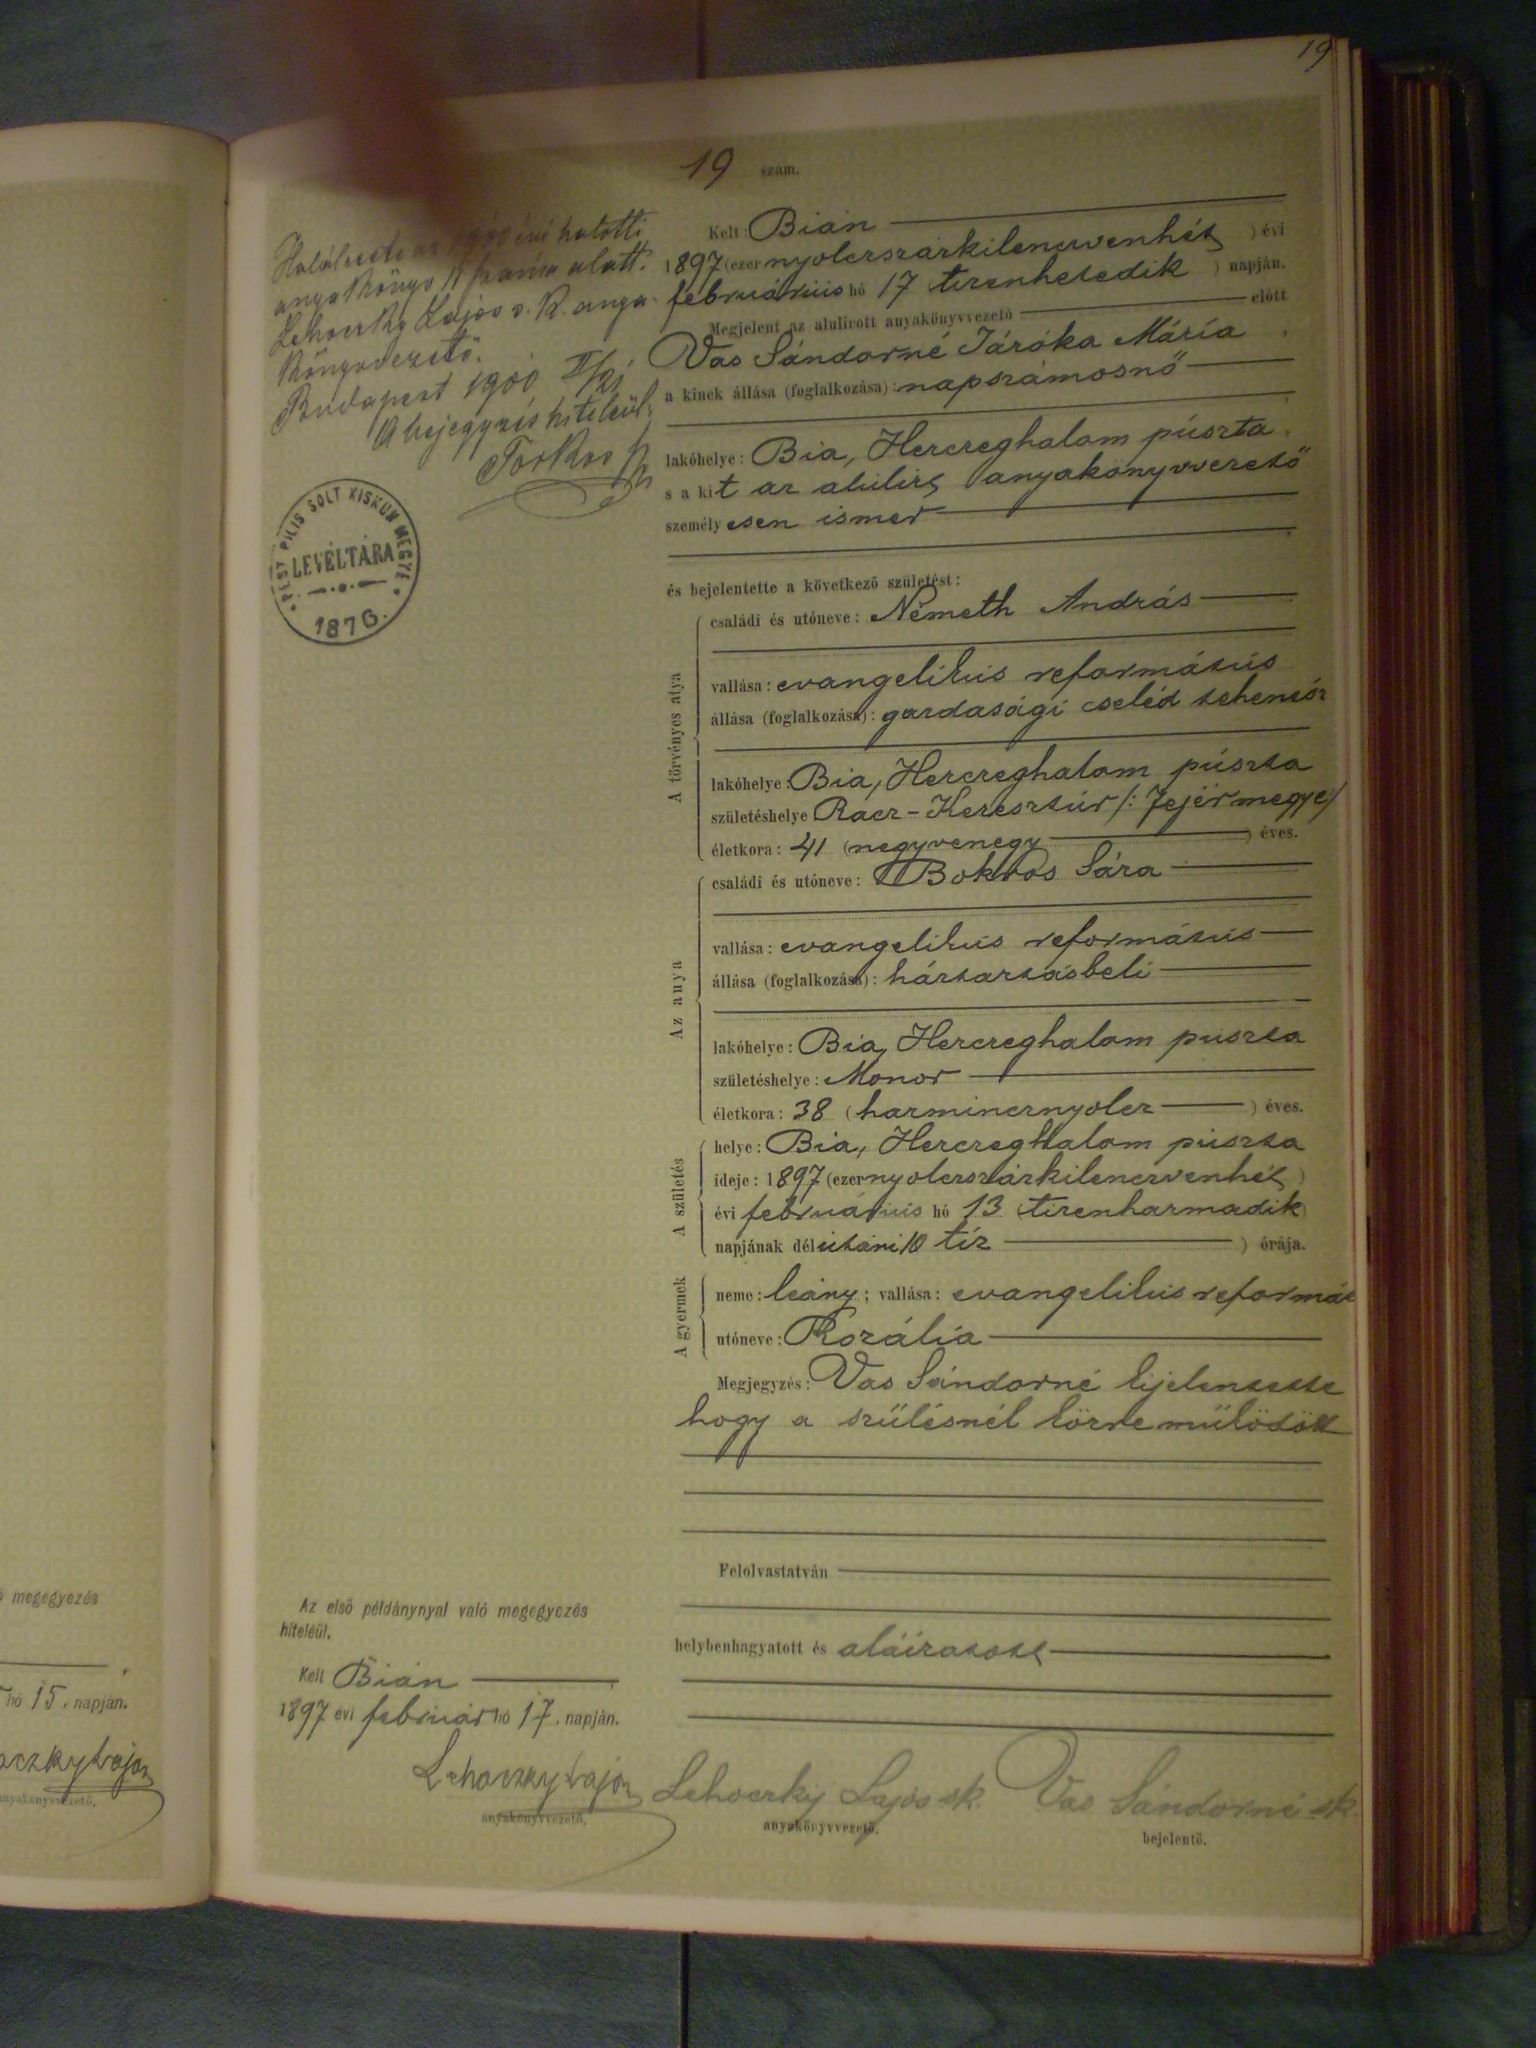 19
19 szám.
Kelt: Bián
1897 (ezernyolczszázkilenczvenhét) évi
februárius hó 17 tizenhetedik) napján.
Megjelent az alulírott anyakönyvvezető előtt
Vas Sándorné Járóka Mária
a kinek állása (foglalkozása): napszámosnő
lakóhelye: Bia, Herczeghalom puszta
s a kit az alulírt anyakönyvvezető
személyesen ismer
és bejelentette a következő születést:
A törvényes atya
családi és utóneve: Németh András
vallása: evangelikus református
állása (foglalkozása): gazdasági cseléd tehenész
lakóhelye: Bia, Herczeghalom puszta
születéshelye Rácz-Keresztúr /: Fejérmegye:/
életkora: 41 (negyvenegy) éves.
Az anya
családi és utóneve: Bokros Sára
vallása: evangelikus református
állása (foglalkozása): háztartásbeli
lakóhelye: Bia, Herczeghalom puszta
születéshelye: Monor
életkora: 38 (harmincznyolcz) éves.
A születés
helye: Bia, Herczeghalom puszta
ideje: 1897 (ezernyolczszázkilenczvenhét)
évi februárius hó 13 (tizenharmadik)
napjának délutáni 10 tíz) órája.
A gyermek
neme: leány; vallása: evangelikus reformát
utóneve: Rozália
Megjegyzés: Vas Sándorné kijelentette
hogy a szülésnél közreműködött
Felolvastatván
helybenhagyatott és aláíratott
Lehoczky Lajos sk. Vas Sándorné sk.
anyakönyvvezető. bejelentő.
Halálesete az 1900 évi halotti
anyakönyv 11 száma alatt.
Lehoczky Lajos s. k. anya-
könyvvezető.
Budapest 1900 II/21
A bejegyzés hiteléül:
Torkos
PEST PILIS SOLT KISKUN MEGYE
LEVÉLTÁRA
1876.
Az első példánynyal való megegyezés
hiteléül.
Kelt Bián
1897 évi február hó 17. napján.
Lehoczky Lajos
anyakönyvvezető.
megegyezés
hó 15. napján.
oczky Lajos
anyakönyvvezető.